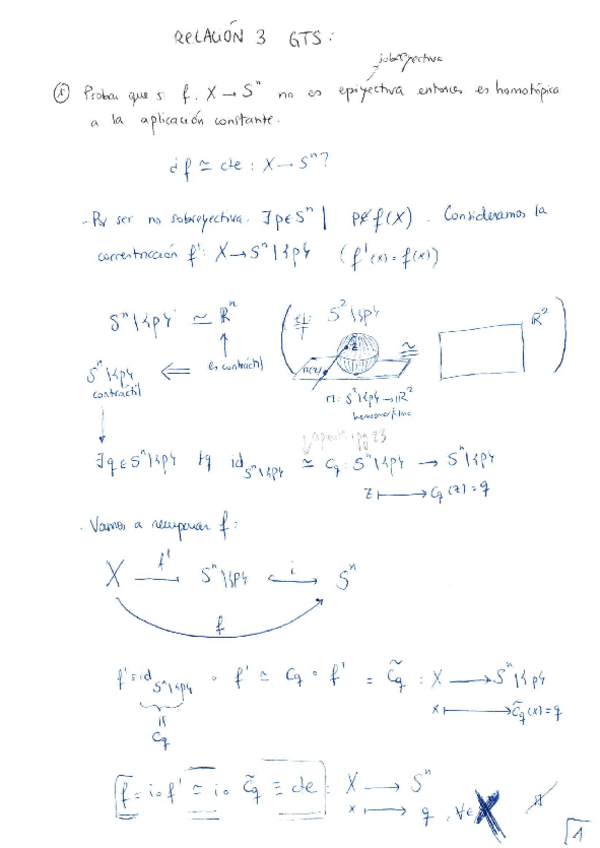 RELACIÓN 3 GTS:
sobreyectiva
Probar que si f: X → Sⁿ no es epiyectiva entonces es homotópica
a la aplicación constante.
¿f ≃ cte : X → Sⁿ?
- Por ser no sobreyectiva. ∃p∈Sⁿ | p∉f(X). Consideramos la
correstricción f': X → Sⁿ\{p} (f'(x)=f(x))
Sⁿ\{p} ≃ ℝⁿ
S²\{p} ≅ ℝ²
Sⁿ\{p} contráctil ⇐ es contráctil
π: S²\{p} → ℝ²
homeomorfismo
∃q∈Sⁿ\{p} tq id_{Sⁿ\{p}} ≃ C_q : Sⁿ\{p} → Sⁿ\{p}
z ↦ C_q(z)=q
- Vamos a recuperar f:
X —f'→ Sⁿ\{p} —i→ Sⁿ
f
f'=id_{Sⁿ\{p}} ∘ f' ≃ C_q ∘ f' = C̃_q : X → Sⁿ\{p}
x ↦ C̃_q(x)=q
C_q
f = i∘f' ≃ i∘C̃_q ≡ cte : X → Sⁿ
x ↦ q, ∀x∈X
1